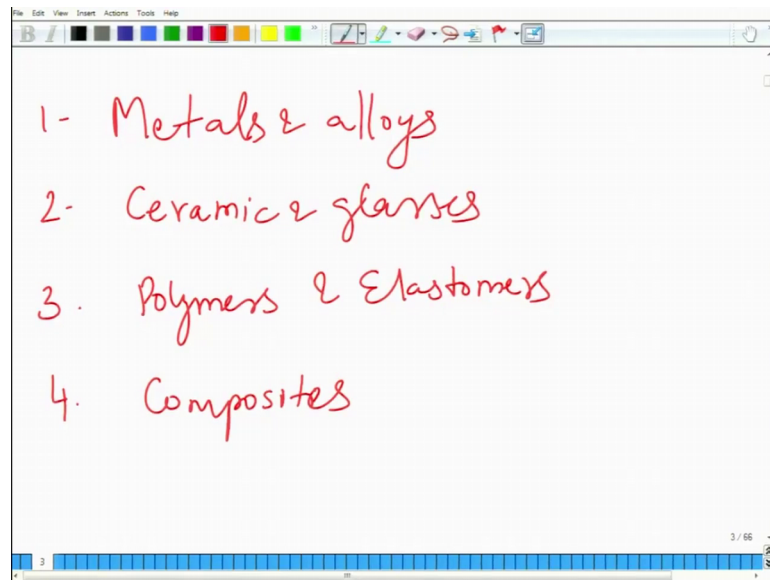 File Edit View Insert Actions Tools Help
B I
1- Metals & alloys
2- Ceramic & glasses
3. Polymers & Elastomers
4. Composites
3 / 66
3